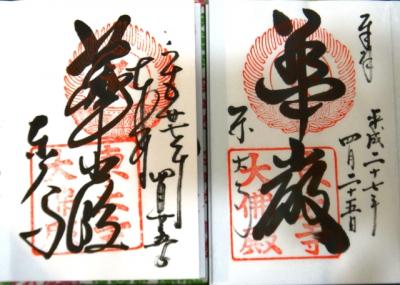 奉拝
平成二十七年
四月二十五日
華厳
東大寺
東大寺
大佛殿
奉拝
平成廿七年
四月廿五日
華厳
東大寺
東大寺
大佛殿